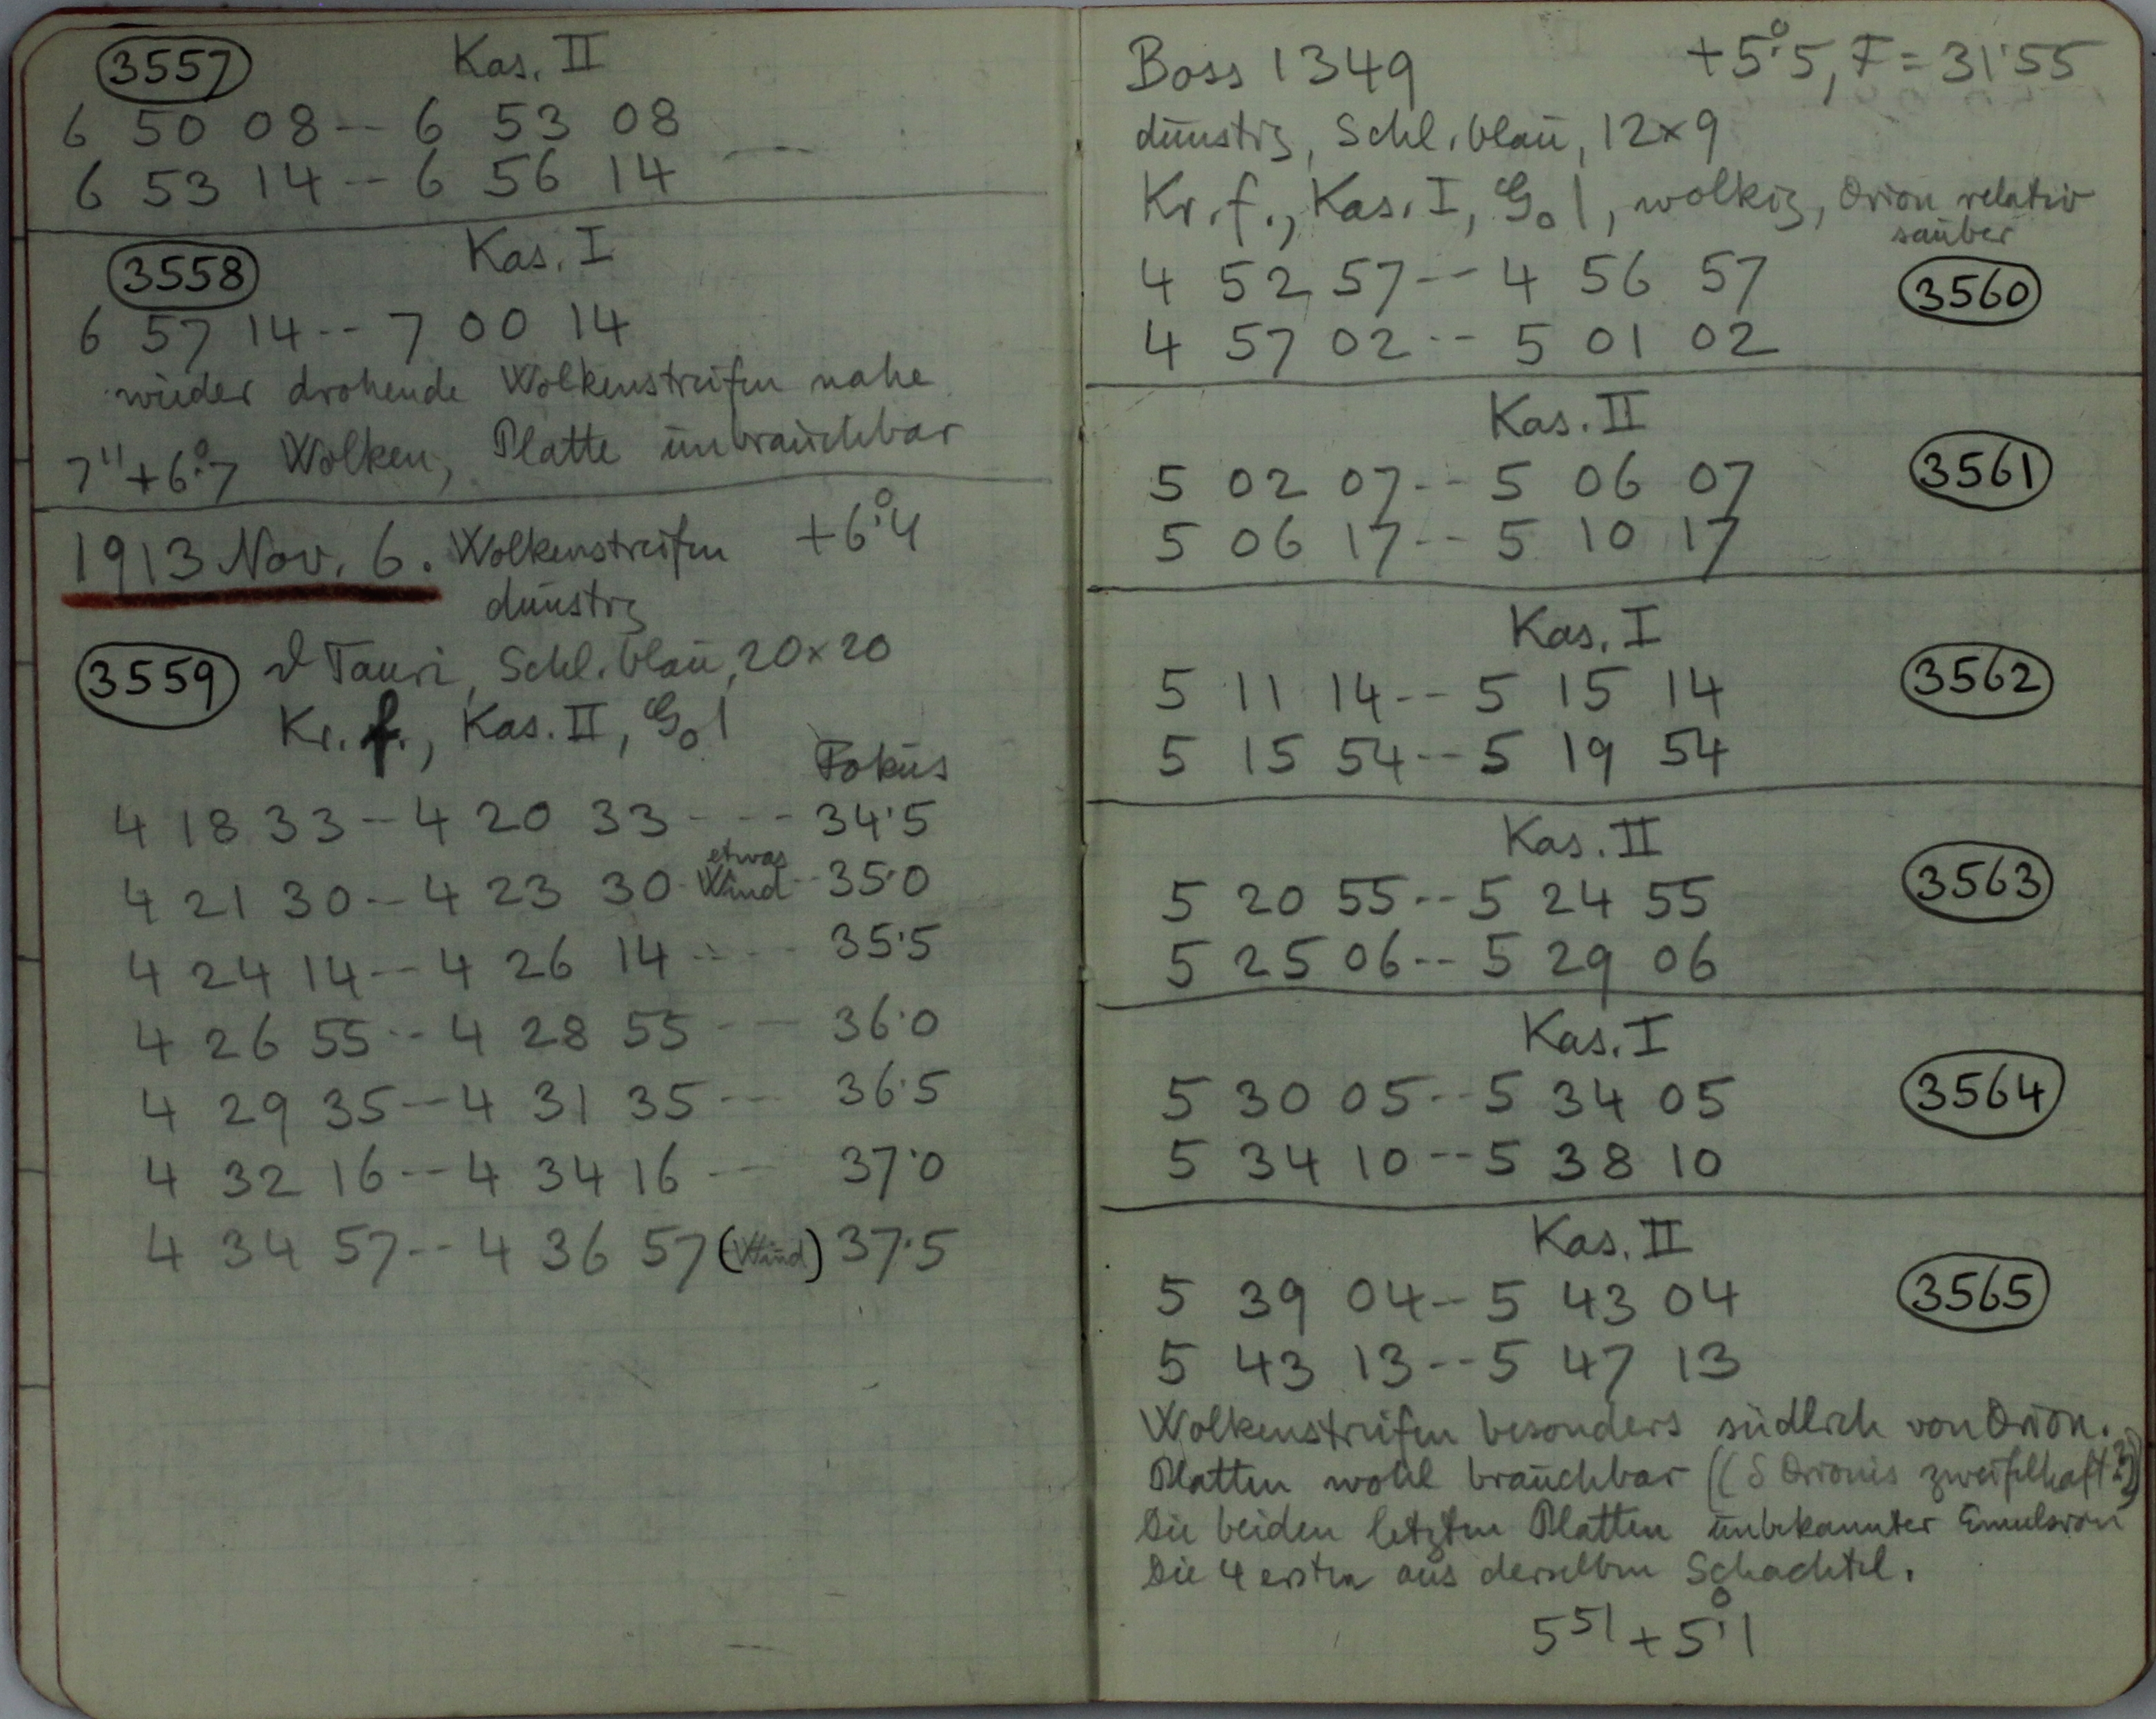 3557 Kas. II
6 50 08 -- 6 53 08
6 53 14 -- 6 56 14
3558 Kas. I
6 57 14 -- 7 00 14
wieder drohende Wolkenstreifen nahe
7 11 +6°.7 Wolken, Platte unbrauchbar
1913 Nov. 6. Wolkenstreifen +6°.4
dunstig
3559 ϑ Tauri, Schl. blau, 20×20
Kr. f., Kas. II, G₀ 1
Fokus
4 18 33 -- 4 20 33 --- 34.5
4 21 30 -- 4 23 30 etwas Wind -- 35.0
4 24 14 -- 4 26 14 ---- 35.5
4 26 55 -- 4 28 55 --- 36.0
4 29 35 -- 4 31 35 --- 36.5
4 32 16 -- 4 34 16 --- 37.0
4 34 57 -- 4 36 57 (Wind) 37.5
Boss 1349 +5°.5, F = 31.55
dunstig, Schl. blau, 12×9
Kr. f., Kas. I, G₀ 1, wolkig, Orion relativ
sauber
4 52 57 -- 4 56 57 3560
4 57 02 -- 5 01 02
Kas. II
5 02 07 -- 5 06 07 3561
5 06 17 -- 5 10 17
Kas. I
5 11 14 -- 5 15 14 3562
5 15 54 -- 5 19 54
Kas. II
5 20 55 -- 5 24 55 3563
5 25 06 -- 5 29 06
Kas. I
5 30 05 -- 5 34 05 3564
5 34 10 -- 5 38 10
Kas. II
5 39 04 -- 5 43 04 3565
5 43 13 -- 5 47 13
Wolkenstreifen besonders südlich von Orion.
Platten wohl brauchbar ((δ Orionis zweifelhaft??))
Die beiden letzten Platten unbekannter Emulsion
Die 4 ersten aus derselben Schachtel.
5 51 +5°.1